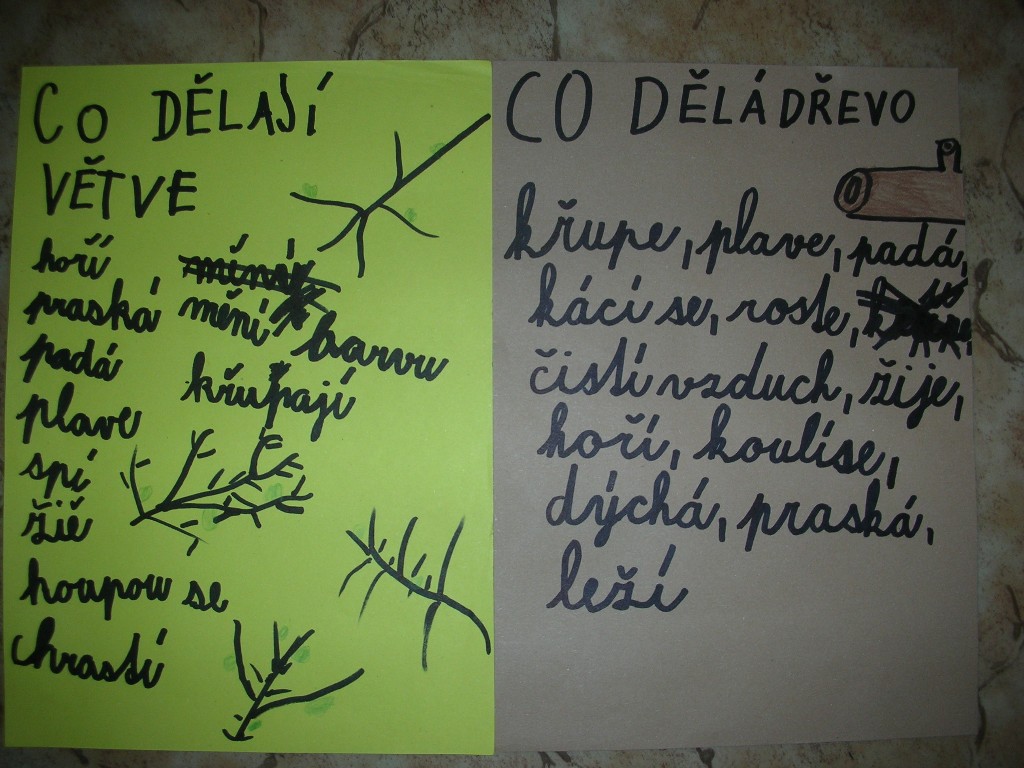 CO DĚLAJÍ
VĚTVE
hoří
praská
padá
plave
spí
žiě
houpou se
chrastí
mění barvu
křupají
CO DĚLÁ DŘEVO
křupe, plave, padá,
kácí se, roste,
čistí vzduch, žije,
hoří, koulíse,
dýchá, praská,
leží